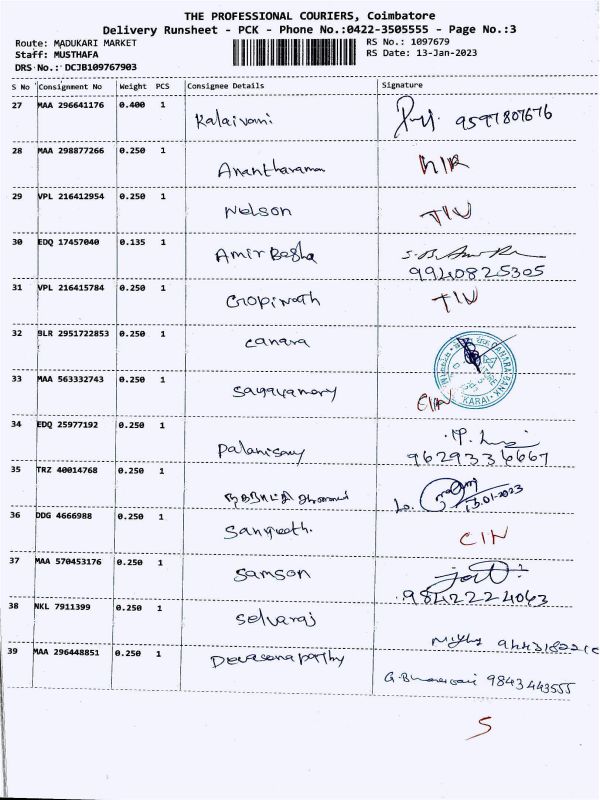 THE PROFESSIONAL COURIERS, Coimbatore
Delivery Runsheet - PCK - Phone No.:0422-3505555 - Page No.:3
Route: MADUKARI MARKET RS No.: 1097679
Staff: MUSTHAFA RS Date: 13-Jan-2023
DRS No.: DCJB109767903
S No Consignment No Weight PCS Consignee Details Signature
27 MAA 296641176 0.400 1 Kalaivani 9597807676
28 MAA 298877266 0.250 1 Anantharaman
29 VPL 216412954 0.250 1 Nelson
30 EDQ 17457040 0.135 1 Amir Basha
9940825305
31 VPL 216415784 0.250 1 Gopinath
32 BLR 2951722853 0.250 1 canara
CANARA BANK
KARAI
33 MAA 563332743 0.250 1 Sagayamary
34 EDQ 25977192 0.250 1 Palanisamy
9629336667
35 TRZ 40014768 0.250 1 13.01.2023
36 DDG 4666988 0.250 1 Sangeeth. CIN
37 MAA 570453176 0.250 1 Samson
9842224063
38 NKL 7911399 0.250 1 Selvaraj
39 MAA 296448851 0.250 1 9843443555
5